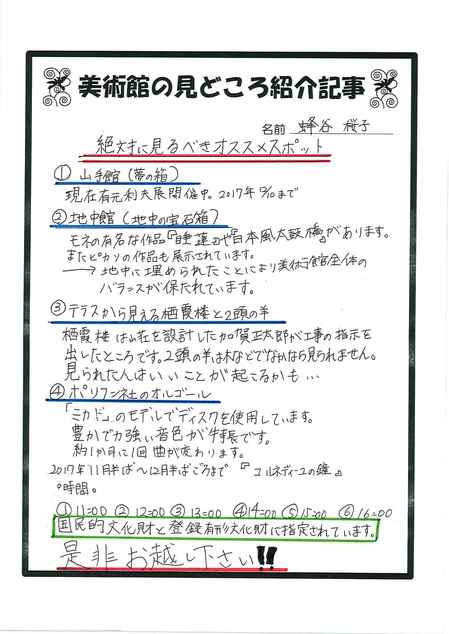 美術館の見どころ紹介記事
名前 蜂谷 桜子
絶対に見るべきオススメスポット
① 山手館(夢の箱)
現在有元利夫展開催中。2017年12/10まで
② 地中館(地中の宝石箱)
モネの有名な作品『睡蓮』や『日本風太鼓橋』があります。
またピカソの作品も展示されています。
→地中に埋められたことにより美術館全体の
バランスが保たれています。
③ テラスから見える栖霞楼と2頭の羊
栖霞楼は山荘を設計した加賀正太郎が工事の指示を
出したところです。2頭の羊は木などでなかなか見られません。
見られた人はいいことが起こるかも…
④ ポリフォン社のオルゴール
「ミカド」のモデルでディスクを使用しています。
豊かで力強い音色が特長です。
約1か月に1回曲が変わります。
2017年11月半ば〜12月半ばごろまで 『コルネヴィーユの鐘』
°時間。
①11:00 ②12:00 ③13:00 ④14:00 ⑤15:00 ⑥16:00
国民的文化財と登録有形文化財に指定されています。
是非お越し下さい!!